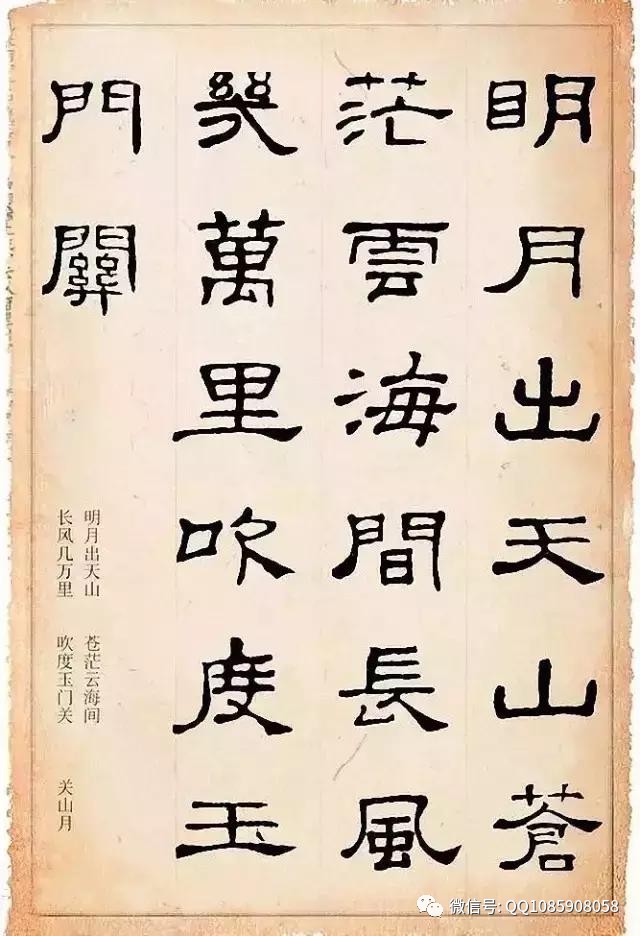 明月出天山蒼
茫雲海間長風
幾萬里吹度玉
門關
明月出天山 苍茫云海间
长风几万里 吹度玉门关 关山月
微信号: QQ1085908058